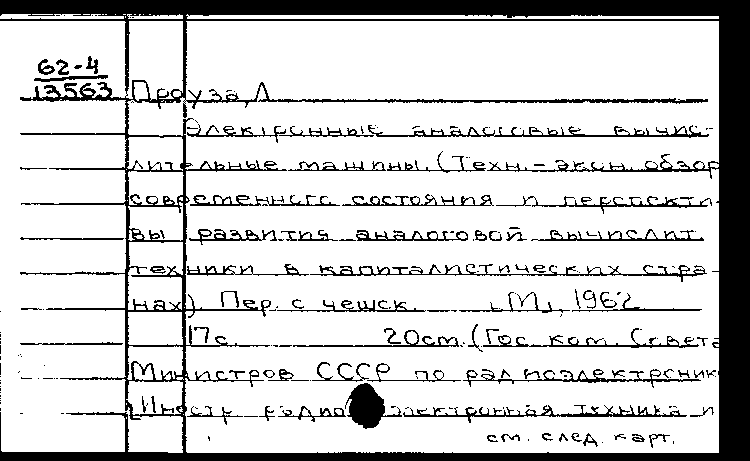 62-4
13563 Проуза, Л
Электронные аналоговые вычис-
лительные машины. (Техн.-экон. обзор
современного состояния и перспекти-
вы развития аналоговой вычислит.
техники в капиталистических стра-
нах). Пер. с чешск. [М], 1962
17с. 20cm. (Гос. ком. Совета
Министров СССР по радиоэлектроник
[Иностр. радиоэлектронная техника и
см. след. карт.